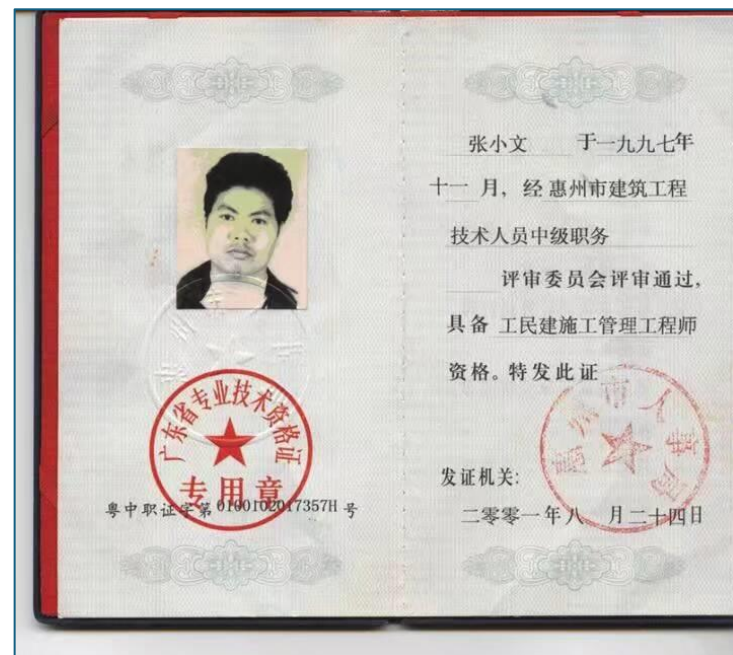 广东省专业技术资格证
专用章
粤中职证字第 0100102017357H 号
张小文 于一九九七年
十一 月，经 惠州市建筑工程
技术人员中级职务
评审委员会评审通过，
具备 工民建施工管理工程师
资格。特发此证
惠州市人事局
发证机关：
二零零一年八 月二十四日